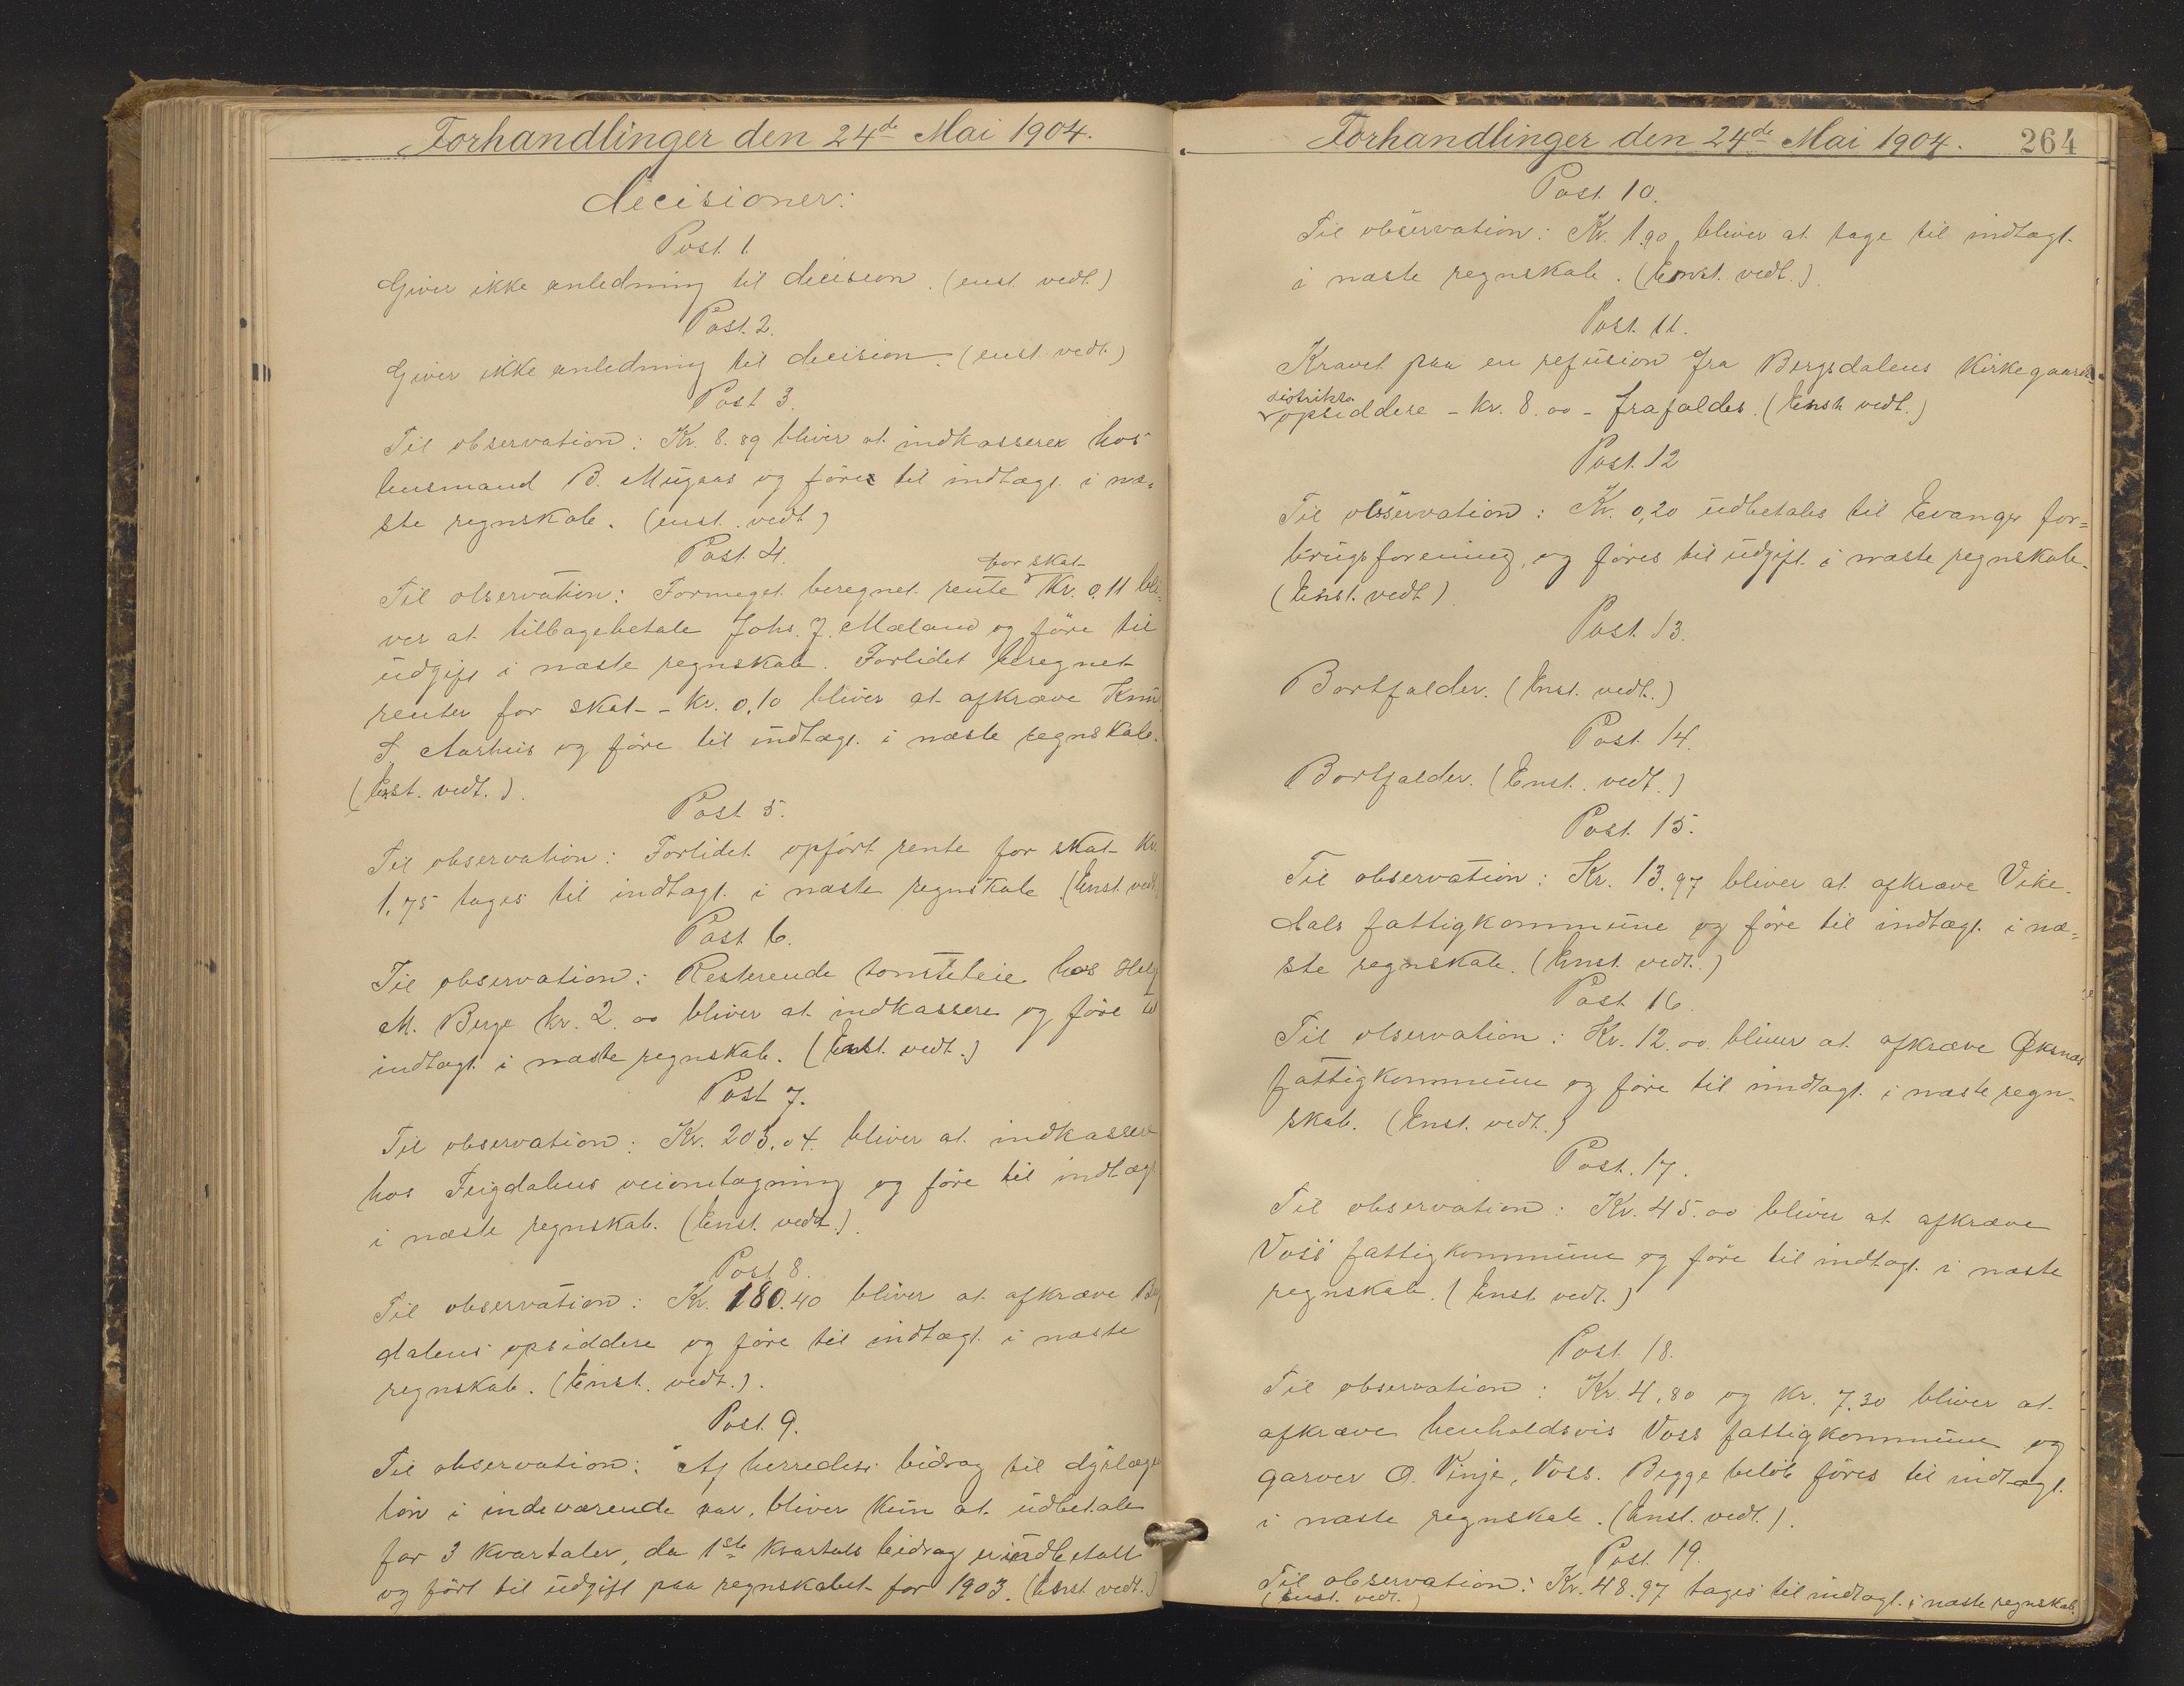 Forhandlinger den 24de Mai 1904.
decisioner:
Post 1
Giver ikke anledning til decision. (enst. vedt.)
Post 2.
Giver ikke anledning til decision. (enst. vedt.)
Post 3.
Til observation: Kr. 8.89 bliver at indkassere hos
lensmand B. Mugaas og føre til indtægt i næ-
ste regnskab. (enst. vedt.)
Post 4.
for skat
Til observation: Formeget beregnet rente Kr. 0.11 bli-
ver at tilbagebetale Johs. J. Mæland og føre til
udgift i næste regnskab. Forlidet beregnet
renter for skat - kr. 0,10 bliver at afkræve Knud
T. Aarhus og føre til indtægt i næste regnskab.
(Enst. vedt.).
Post 5.
Til observation: Forlidet opført rente for skat kr.
1,75 tages til indtægt i næste regnskab (Enst. vedt.
Post 6.
Til observation: Resterende tomteleie hos Helg
M. Berge kr. 2.00 bliver at indkassere og føre til
indtægt i næste regnskab. (Enst. vedt.)
Post 7.
Til observation: Kr. 203.04 bliver at indkassere
hos Teigdalens veiomlægning og føre til indtægt
i næste regnskab. (Enst. vedt.).
Post 8.
Til observation: Kr. 180.40 bliver at afkræve Berg
dalens opsiddere og føre til indtægt i næste
regnskab. (Enst. vedt.).
Post 9.
Til observation: Af herredets bidrag til dyrlæge
løn i indeværende aar, bliver kun at udbetale
for 3 kvartaler, da 1ste kvartals bidrag er indbetalt
og ført til udgift paa regnskabet for 1903. (Enst. vedt.)
Forhandlinger den 24de Mai 1904. 264
Post. 10.
Til observation: Kr. 1.90 bliver at tage til indtægt
i næste regnskab. (Enst. vedt.).
Post. 11.
Kravet paa en refusion fra Bergsdalens kirkegaards-
distrikts
opsiddere - kr. 8.00 - frafaldes. (Enst. vedt.)
Post. 12
Til observation: Kr. 0,20 udbetales til Evanger for-
brugsforening, og føres til udgift i næste regnskab.
(Enst. vedt.)
Post 13.
Bortfalder. (Enst. vedt.)
Post 14.
Bortfalder. (Enst. vedt.)
Post 15.
Til observation: Kr. 13.97 bliver at afkræve Vike-
dals fattigkommune og føre til indtægt i næ-
ste regnskab. (Enst. vedt.)
Post 16.
Til observation: Kr. 12.00 bliver at afkræve Øksnæs
fattigkommune og føre til indtægt i næste regn-
skab. (Enst. vedt.)
Post. 17.
Til observation: Kr. 45.00 bliver at afkræve
Voss fattigkommune og føre til indtægt i næste
regnskab. (Enst. vedt.)
Post 18.
Til observation: Kr. 4,80 og kr. 7.30 bliver at
afkræve henholdsvis Voss fattigkommune og
garver O. Vinje, Voss. Begge beløb føres til indtægt
i næste regnskab. (Enst. vedt.).
Post. 19.
Til observation: Kr. 48.97 tages til indtægt i næste regnskab.
(Enst. vedt.)